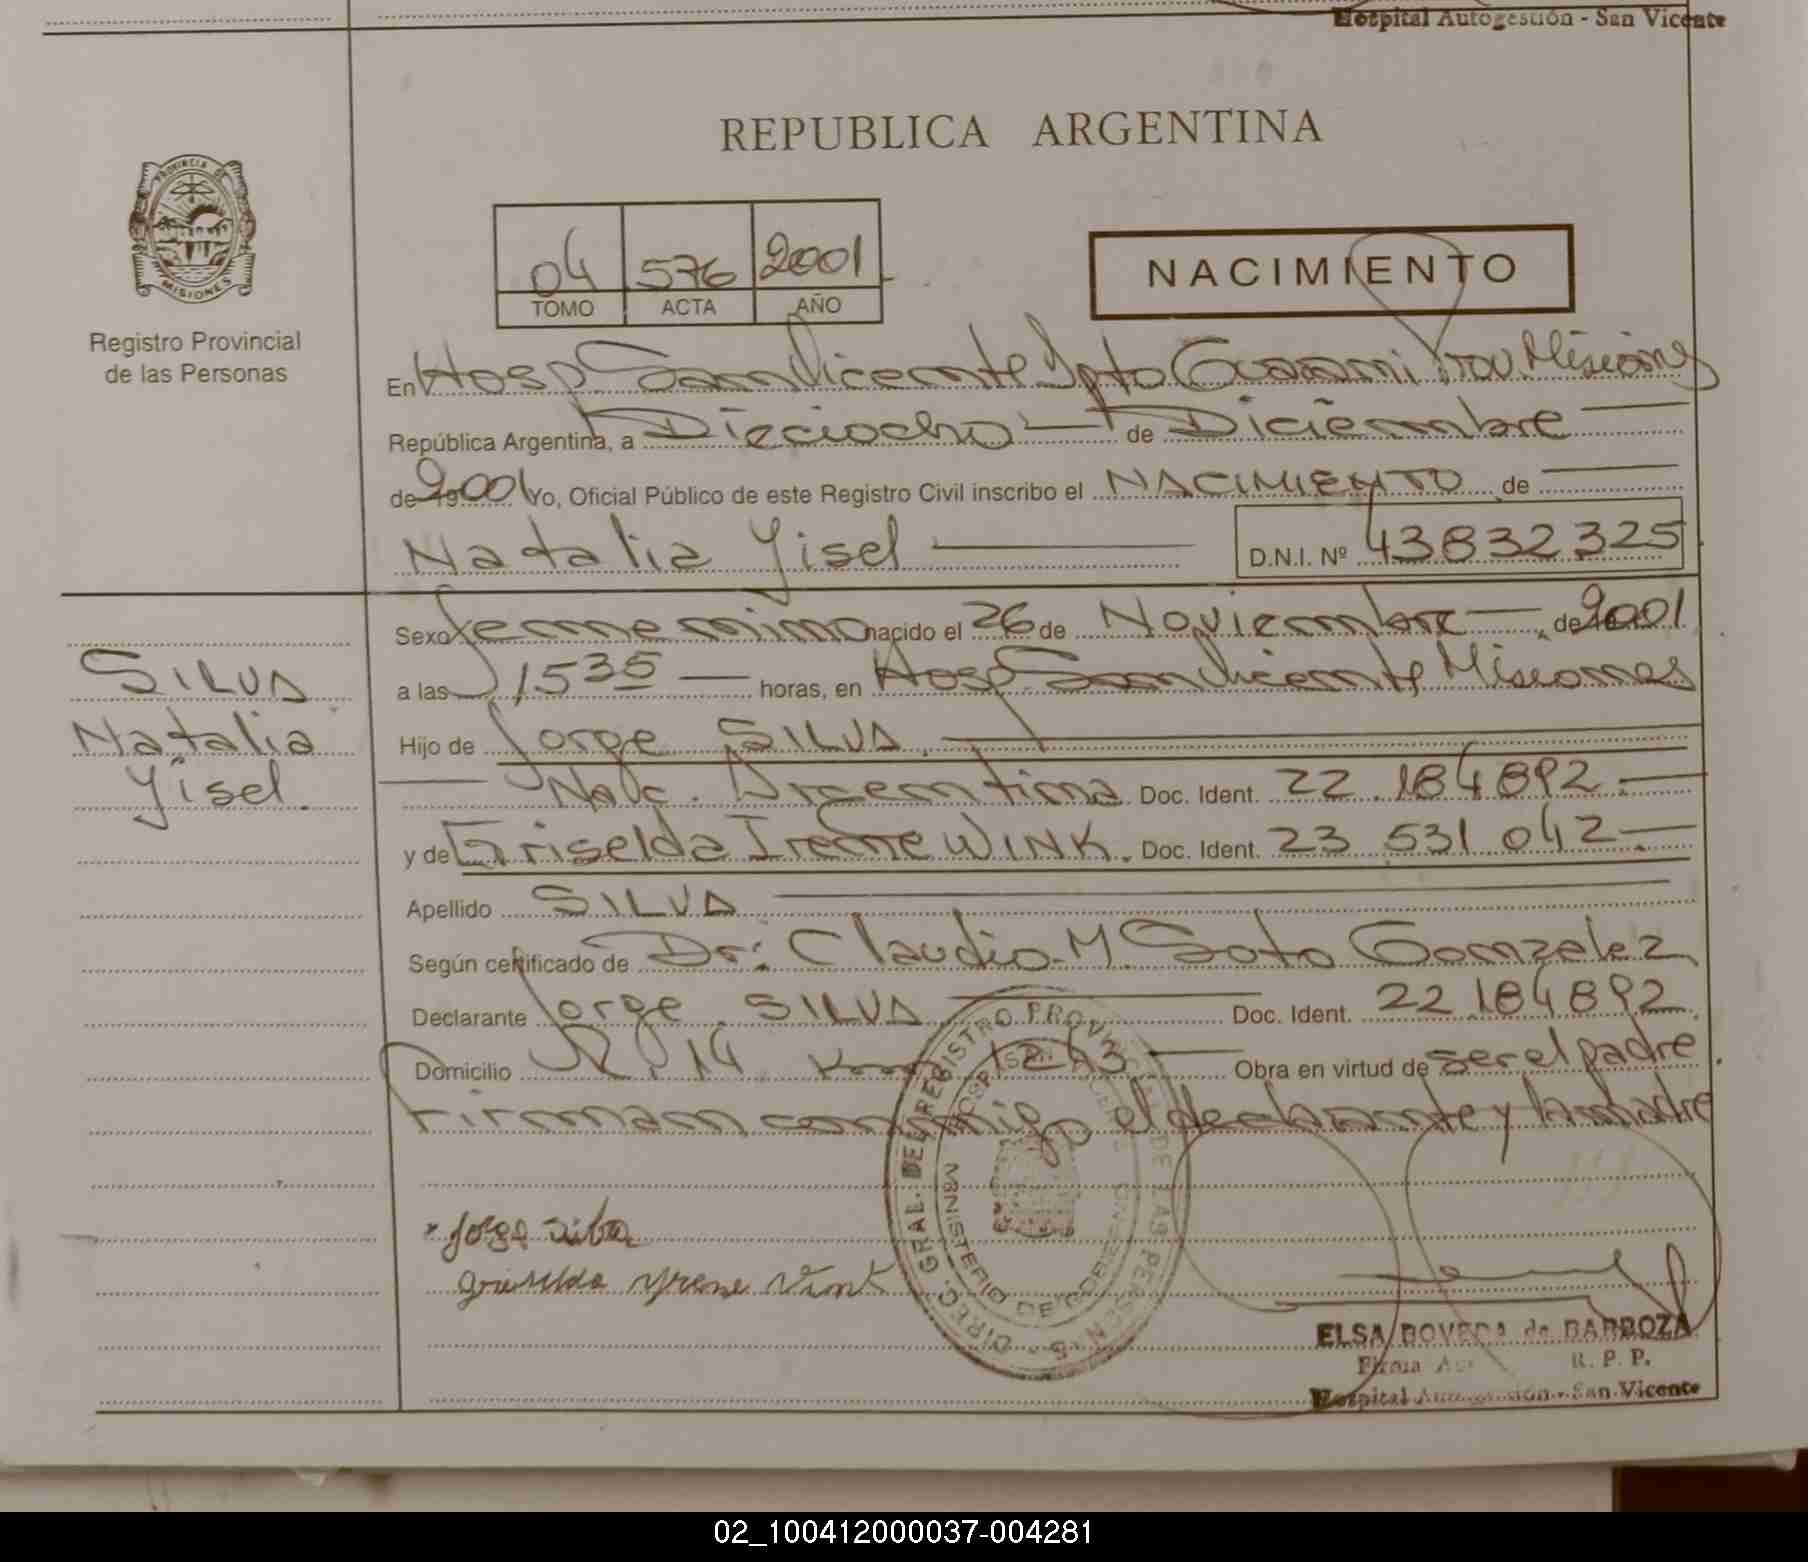 Hospital Autogestión - San Vicente
REPUBLICA ARGENTINA
PROVINCIA DE MISIONES
Registro Provincial
de las Personas
04 576 2001
TOMO ACTA AÑO
NACIMIENTO
En Hosp San Vicente Dpto Guaraní Prov. Misiones
República Argentina, a Dieciocho de Diciembre
de 2001 Yo, Oficial Público de este Registro Civil inscribo el NACIMIENTO de
Natalia Yisel D.N.I. Nº 43832325
Sexo femenino nacido el 26 de Noviembre de 2001
a las 1535 horas, en Hosp San Vicente Misiones
Hijo de Jorge SILVA
Nac. Argentina Doc. Ident. 22.184892.
y de Griselda Irene WINK. Doc. Ident. 23 531 042.
Apellido SILVA
Según certificado de Dr: Claudio M. Soto Gonzalez
Declarante Jorge SILVA Doc. Ident. 22.184892.
Domicilio R. 14 Km 1243 Obra en virtud de ser el padre.
Firman conmigo el declarante y la madre
SILVA
Natalia
Yisel.
Jorge Silva
Griselda Yrene Wink
DIREC. GRAL. DEL REGISTRO PROVINCIAL DE LAS PERSONAS
MINISTERIO DE GOBIERNO
ELSA de BARBOZA
Firma R. P. P.
Hospital Autogestión - San Vicente
02_100412000037-004281